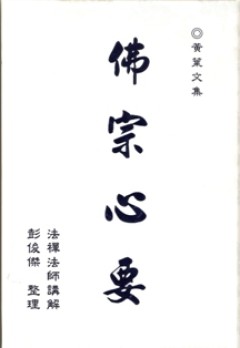 ◎黃葉文集
佛宗心要
法禪法師講解
彭俊傑 整理